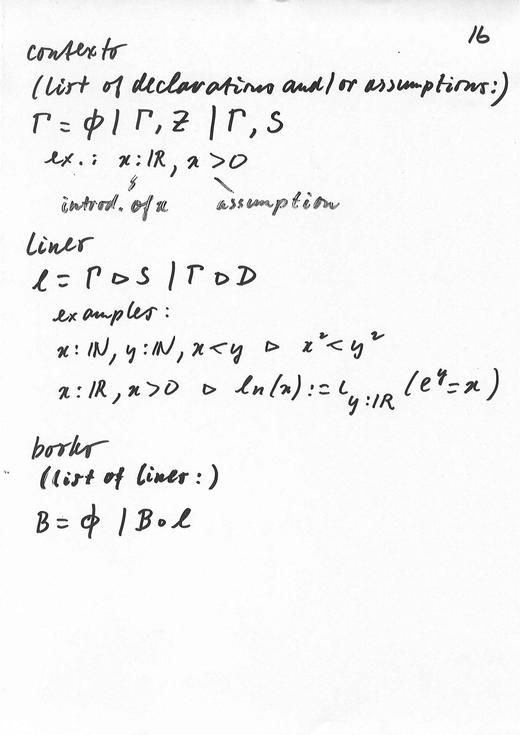 16
contexts
(list of declarations and/or assumptions:)
Γ = ϕ | Γ, Z | Γ, S
ex.: x:ℝ, x > 0
introd. of x assumption
lines
l = Γ ▷ S | Γ ▷ D
examples:
x: ℕ, y: ℕ, x < y ▷ x² < y²
x: ℝ, x > 0 ▷ ln(x) := ι_{y:ℝ} (e^y = x)
books
(list of lines:)
B = ϕ | B∘l